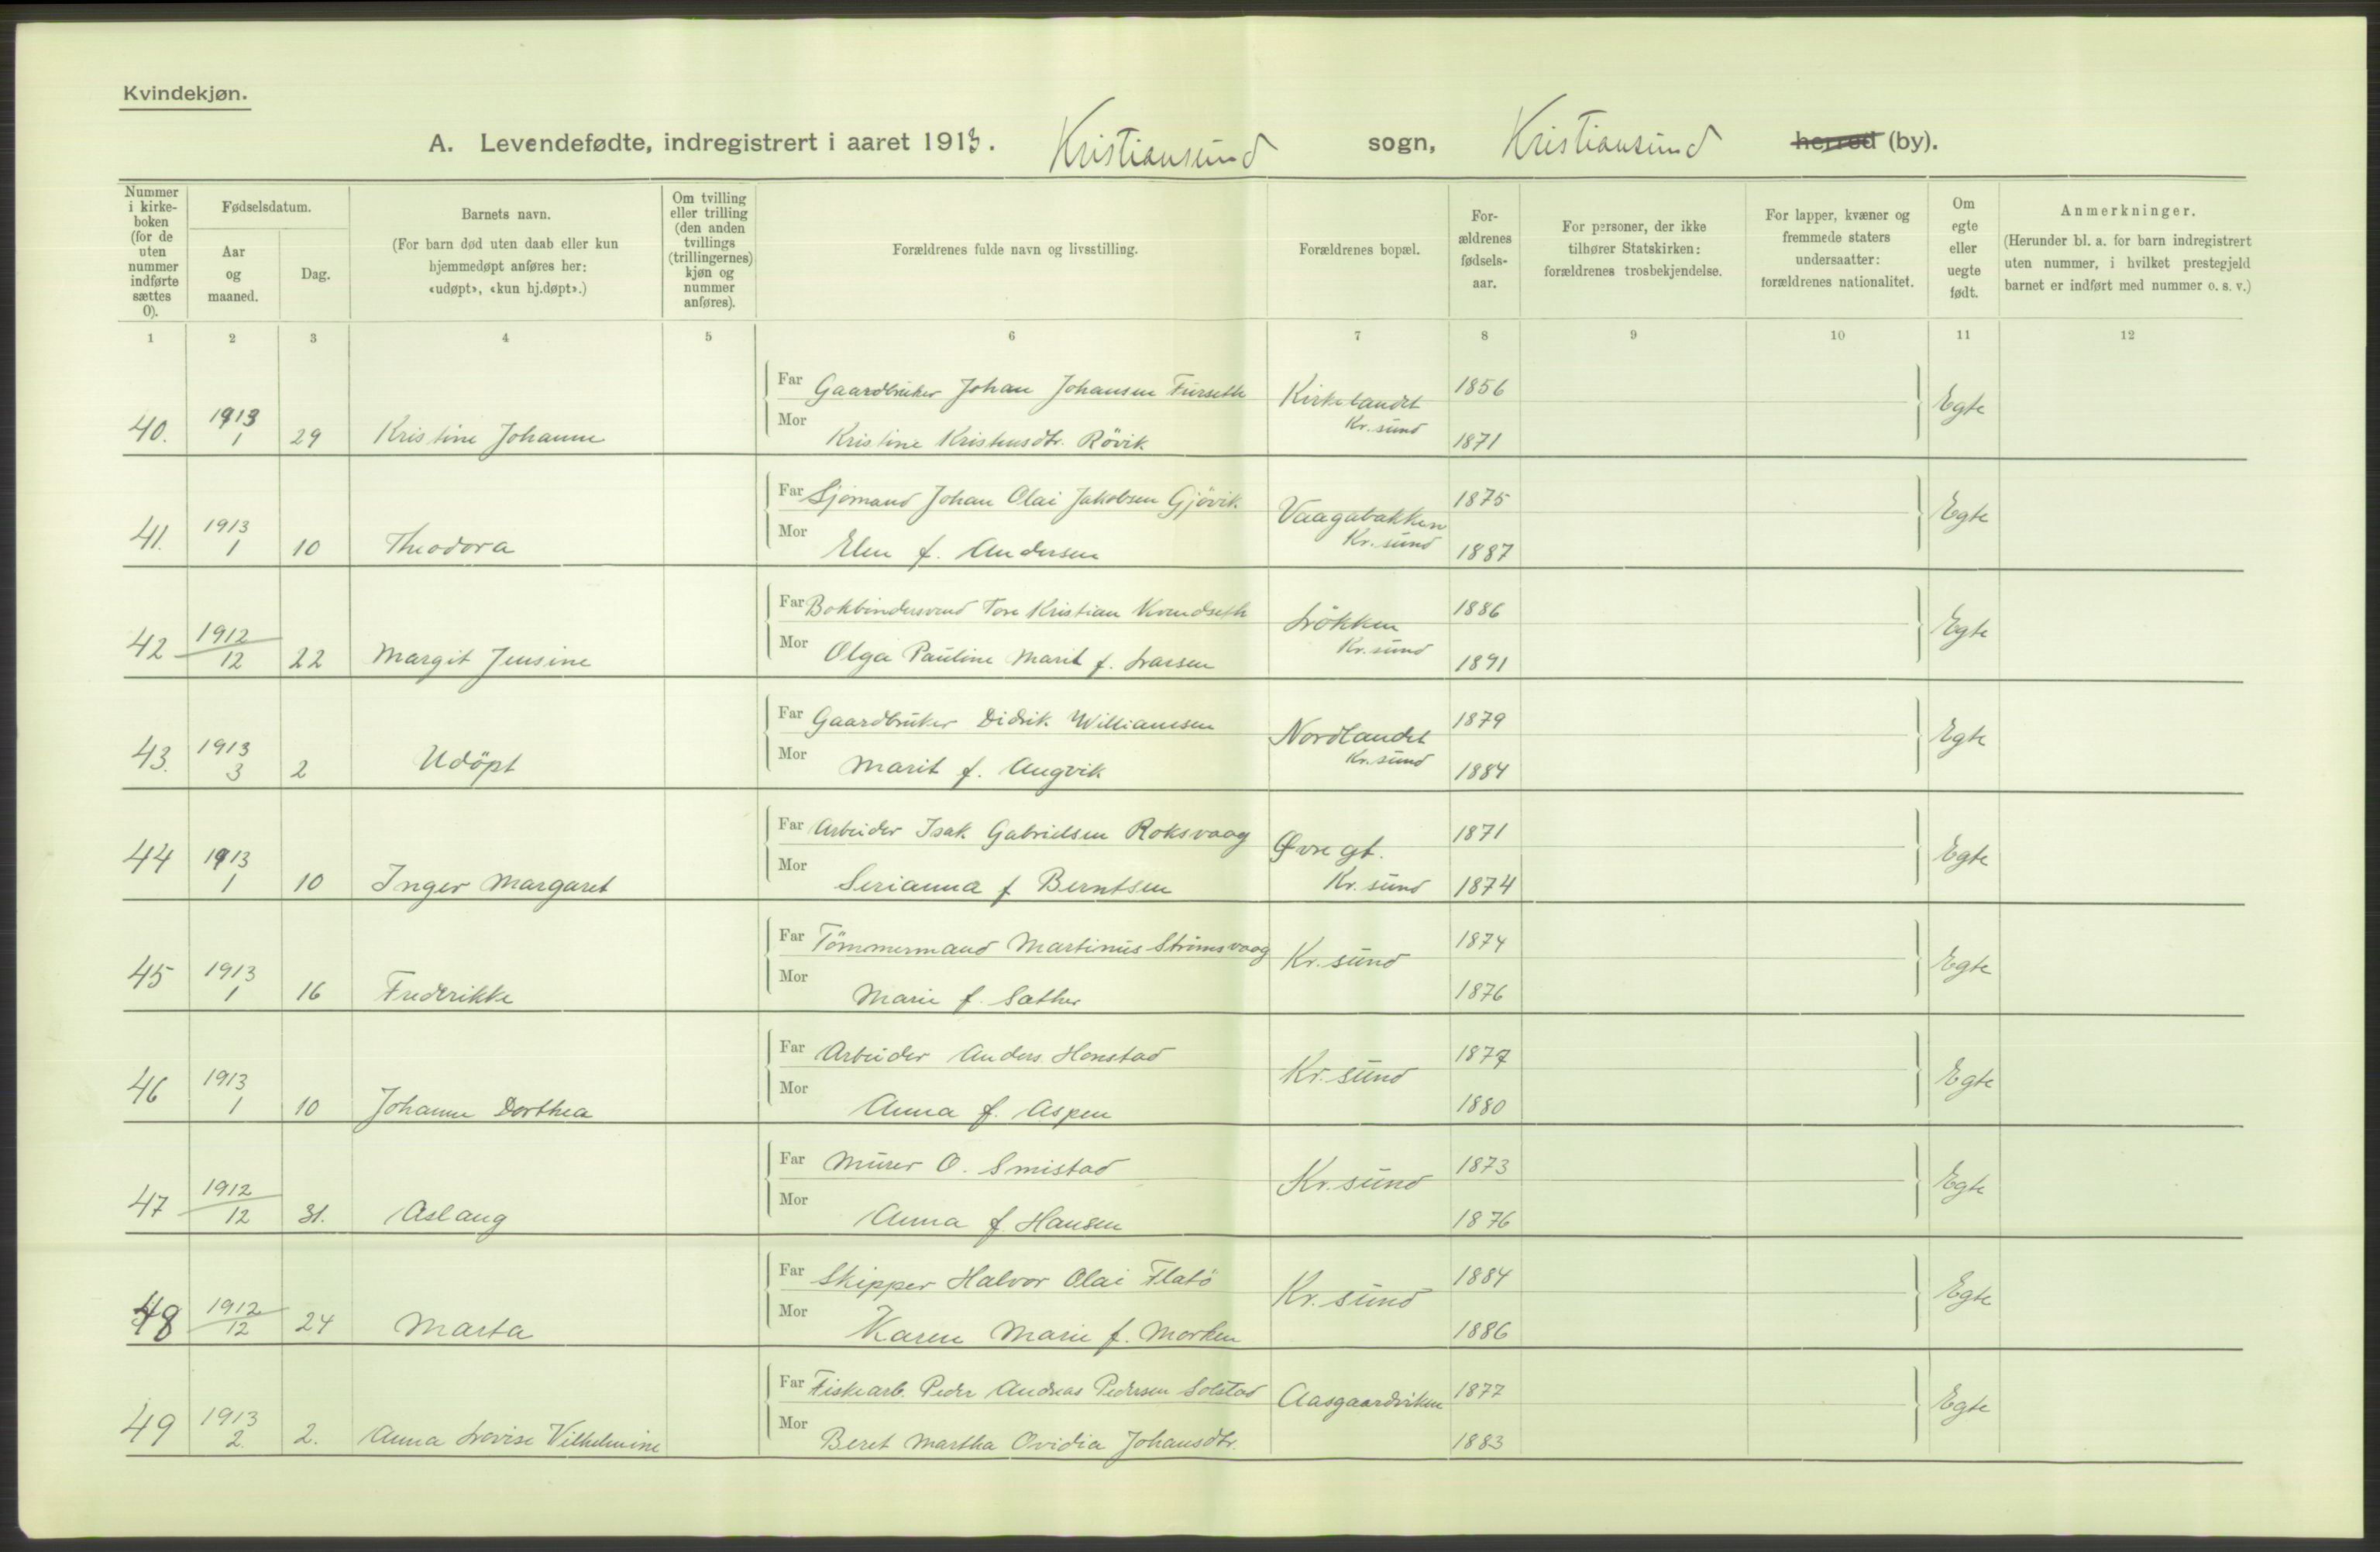 Kvindekjøn.
A. Levendefødte, indregistrert i aaret 1913. Kristiansund sogn, Kristiansund herred (by).
Nummer i kirke-boken (for de uten nummer indførte sættes 0).
Fødselsdatum.
Aar og maaned.
Dag.
Barnets navn.
(For barn død uten daab eller kun hjemmedøpt anføres her: «udøpt», «kun hj.døpt».)
Om tvilling eller trilling (den anden tvillings (trillingernes) kjøn og nummer anføres).
Forældrenes fulde navn og livsstilling.
Forældrenes bopæl.
For-ældrenes fødsels-aar.
For personer, der ikke tilhører Statskirken: forældrenes trosbekjendelse.
For lapper, kvæner og fremmede staters undersaatter: forældrenes nationalitet.
Om egte eller uegte født.
Anmerkninger.
(Herunder bl. a. for barn indregistrert uten nummer, i hvilket prestegjeld barnet er indført med nummer o. s. v.)
1 2 3 4 5 6 7 8 9 10 11 12
Far Gaardbruker Johan Johansen Furseth Kirkelandet 1856
40. 1913 1 29 Kristine Johanne Kr. sund Egte
Mor Kristine Kristensdtr. Rövik 1871
Far Sjømand Johan Olai Jakobsen Gjövik 1875
41. 1913 1 10 Theodora Vaagabakken Kr. sund Egte
Mor Elen f. Andersen 1887
Far Bokbindersvend Tore Kristian Kvendseth 1886
42 1912 12 22 Margit Jensine Løkken Kr. sund Egte
Mor Olga Pauline Marit f. Larsen 1891
Far Gaardbruker Didrik Williamsen 1879
43. 1913 3 2 Udöpt Nordlandet Kr. sund Egte
Mor Marit f. Angvik 1884
Far Arbeider Isak Gabrielsen Roksvaag 1871
44 1913 1 10 Inger Margaret Øvre gt. Kr. sund Egte
Mor Serianna f Berntsen 1874
Far Tömmermand Martinus Strömsvaag 1874
45 1913 1 16 Frederikke Kr. sund Egte
Mor Marie f. Sæther 1876
Far Arbeider Anders Honstad 1877
46 1913 1 10 Johanne Dorthea Kr. sund Egte
Mor Anna f. Aspen 1880
Far Murer O. Smistad 1873
47 1912 12 31. Aslaug Kr. sund Egte
Mor Anna f. Hansen 1876
Far Skipper Halvor Olai Flatö 1884
48 1912 12 24 Marta Kr. sund Egte
Mor Karen Marie f. Morken 1886
Far Fiskearb. Peder Andreas Pedersen Solstad Aasgaardviken 1877
49 1913 2. 2. Anna Lovise Vilhelmine Egte
Mor Beret Martha Ovidia Johansdtr. 1883